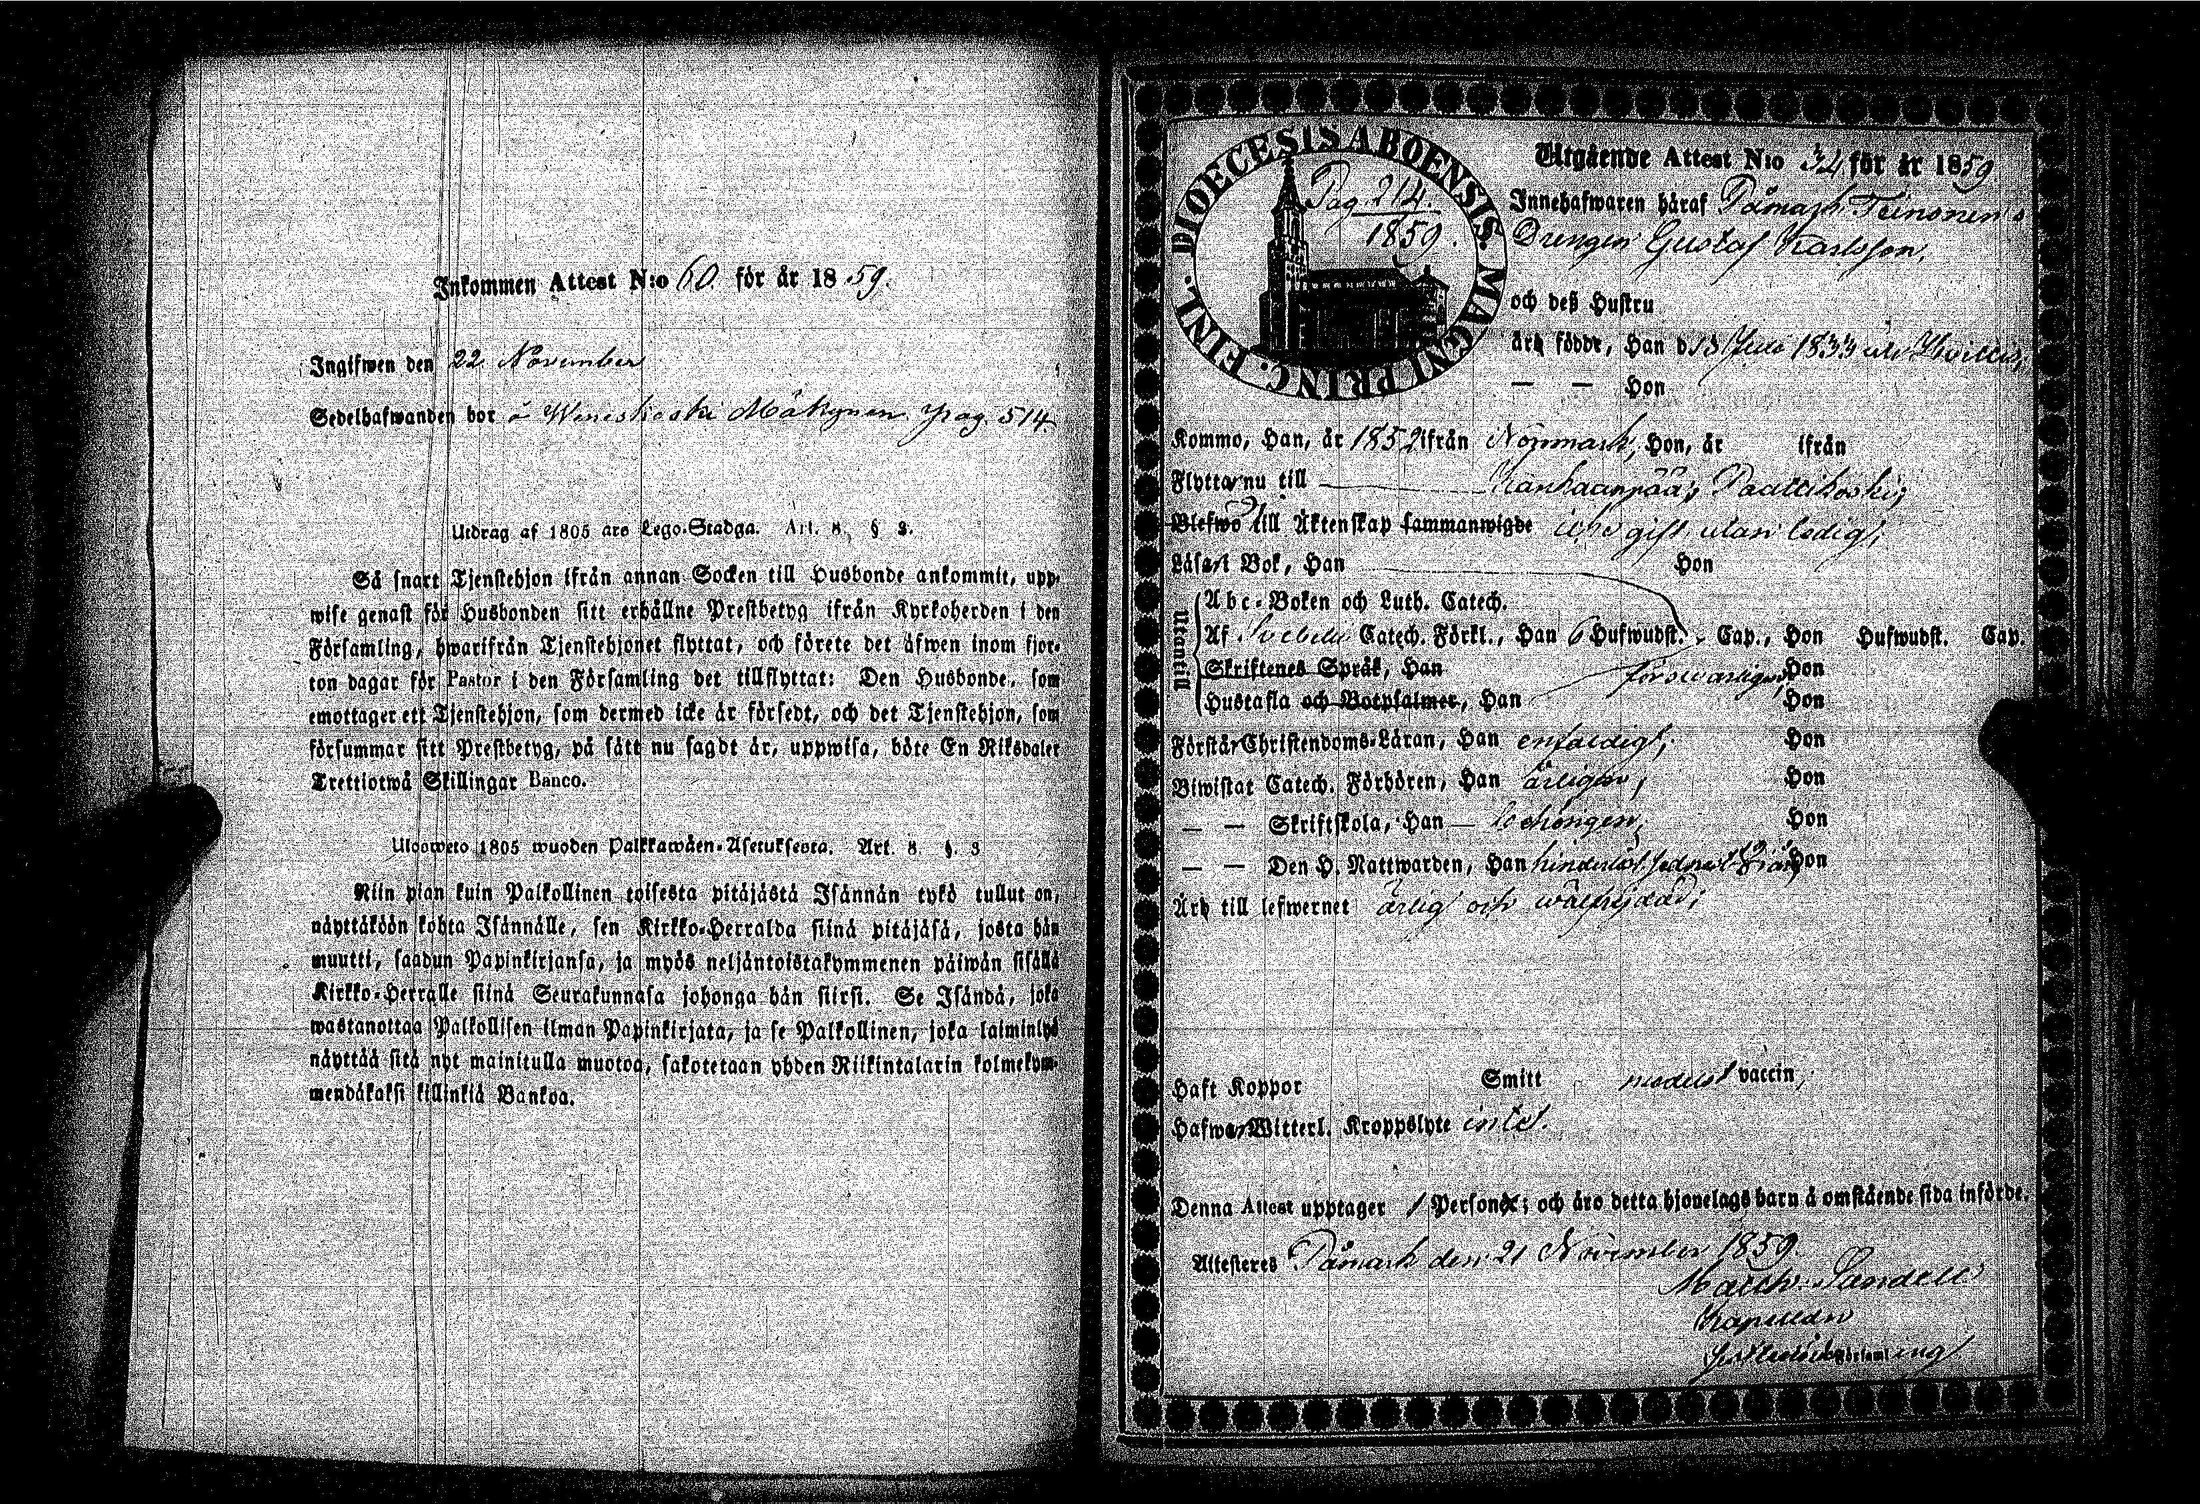 Inkommen Attest N:o 60 för år 1859.
Ingifwen den 22 November
Sedelhafwanden bor å Mäkynen pag. 514
Utdrag af 1805 års Lego-Stadga. Art. 8, § 3.
Så snart Tjenstehjon ifrån annan Socken till Husbonde ankommit, upp-
wise genast för Husbonden sitt erhållne Prestbetyg ifrån Kyrkoherden i den
Församling, hwarifrån Tjenstehjonet flyttat, och förete det äfwen inom fjor-
ton dagar för Pastor i den Församling det tillflyttat: Den Husbonde, som
emottager ett Tjenstehjon, som dermed icke är försedt, och det Tjenstehjon, som
försummar sitt Prestbetyg, på sätt nu sagdt är, uppwisa, böte En Riksdaler
Trettiotwå Skillingar Banco.
Uloosweto 1805 wuoden Palkkawäen-Asetuksesta. Art. 8. §. 3
Niin pian kuin Palkollinen toisesta pitäjästä Isännän tykö tullut on,
näyttäköön kohta Isännälle, sen Kirkko-Herralda siinä pitäjäsä, josta hän
muutti, saadun Papinkirjansa, ja myös neljäntoistakymmenen päiwän sisällä
Kirkko-Herralle siinä Seurakunnasa johonga hän siirsi. Se Isändä, joka
wastanottaa Palkollisen ilman Papinkirjata, ja se Palkollinen, joka laiminlyö
näyttää sitä nyt mainitulla muotoa, sakotetaan yhden Riikintalarin kolmekym-
mendäkaksi killinkiä Bankoa.
DIOECESIS ABOENSIS. MAGNI PRINC. FINL.
Pag. 214.
1859.
Utgående Attest N:o 34 för år 1859
Innehafwaren häraf Påmark Teinonens
Drengen Gustaf Karlsson,
och deß Hustru
är född, Han d. 13 1833
— — Hon
Kommo, Han, år 1852 ifrån Norrmark, Hon, år ifrån
Flyttar nu till Kankaanpää, Paattikoski;
Blefwo till Äktenskap sammanwigde icke gift utan ledig;
Läsa i Bok, Han Hon
Utantill
Abc-Boken och Luth. Catech.
Af Svebelii Catech. Förkl., Han 6 Hufwudst. Cap., Hon Hufwudst. Cap.
Skriftenes Språk, Han försvarligen, Hon
Hustafla och Botpsalmer, Han Hon
Förstår Christendoms-Läran, Han enfaldigt; Hon
Biwistat Catech. Förhören, Han årligen, Hon
— — Skriftskola, Han Hon
— — Den H. Nattwarden, Han Hon
Är till lefwernet ärlig och wälfrejdad;
Haft Koppor Smitt medelst vaccin;
Hafwer Witterl. Kroppslyte intet.
Denna Attest upptager 1 Person; och äro detta hjonelags barn å omstående sida införde.
Attesteras Påmark den 21 November 1859.
Matth. Sandell
Kapellan